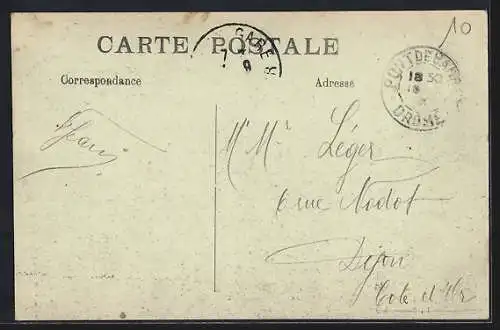 10
CARTE POSTALE
GARE
Correspondance
Adresse
PONT DE BARRET
18 30
DROME
Jean
Mr Mr Léger
6 rue Nodot
Dijon
Cote d'Or